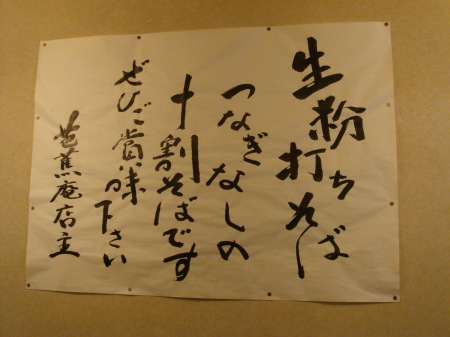 生粉打ちそば
つなぎなしの
十割そばです
ぜひご賞味下さい
芭蕉庵店主